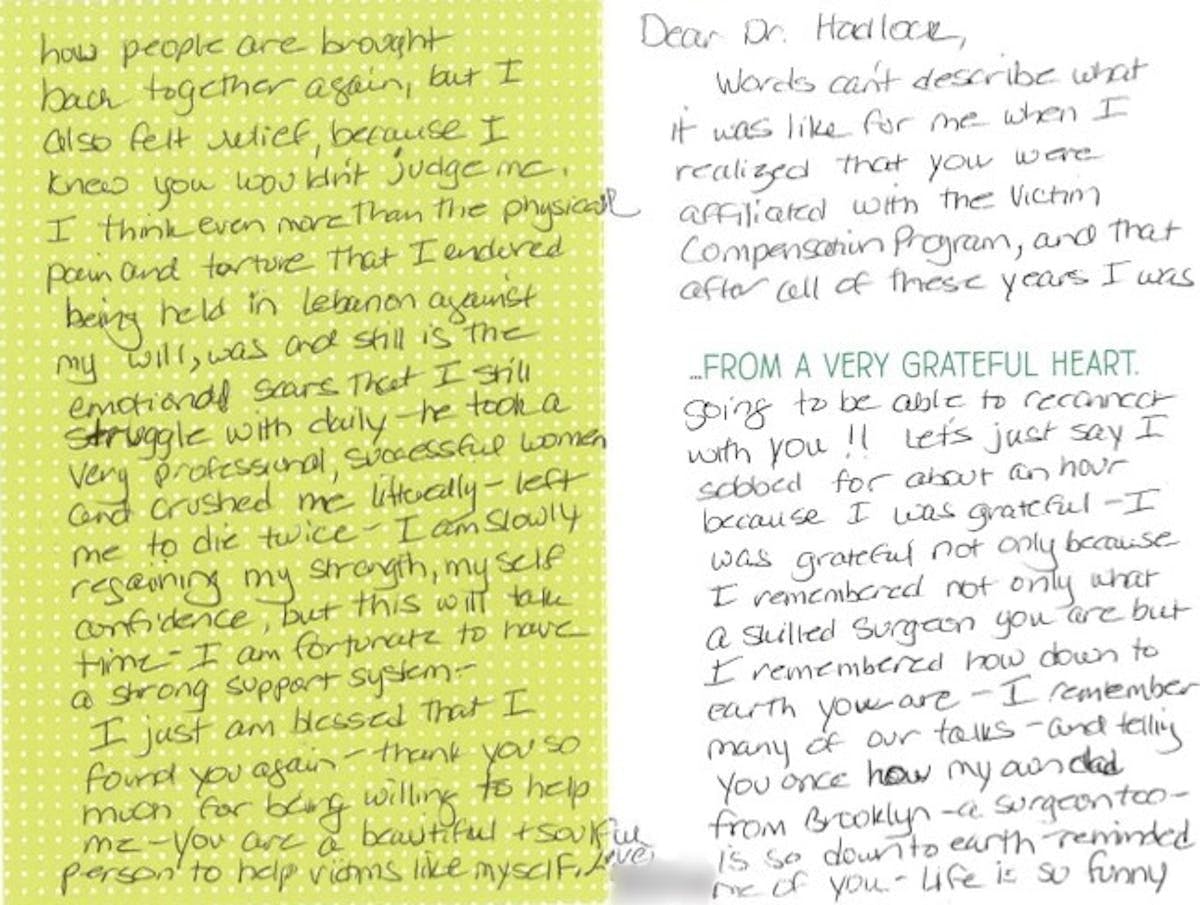 Dear Dr. Hadlock,
Words can't describe what
it was like for me when I
realized that you were
affiliated with the Victim
Compensation Program, and that
after all of these years I was
...FROM A VERY GRATEFUL HEART.
going to be able to reconnect
with you!! Let's just say I
sobbed for about an hour
because I was grateful - I
was grateful not only because
I remembered not only what
a skilled surgeon you are but
I remembered how down to
earth you are - I remember
many of our talks - and telling
you once how my own dad
from Brooklyn - a surgeon too -
is so down to earth - reminded
me of you - Life is so funny
how people are brought
back together again, but I
also felt relief, because I
knew you wouldn't judge me.
I think even more than the physical
pain and torture that I endured
being held in Lebanon against
my will, was and still is the
emotional scars that I still
struggle with daily - he took a
very professional, successful women
and crushed me litterally - left
me to die twice - I am slowly
regaining my strength, my self
confidence, but this will take
time - I am fortunate to have
a strong support system -
I just am blessed that I
found you again - thank you so
much for being willing to help
me - you are a beautiful + soulful
person to help victims like myself. Love,